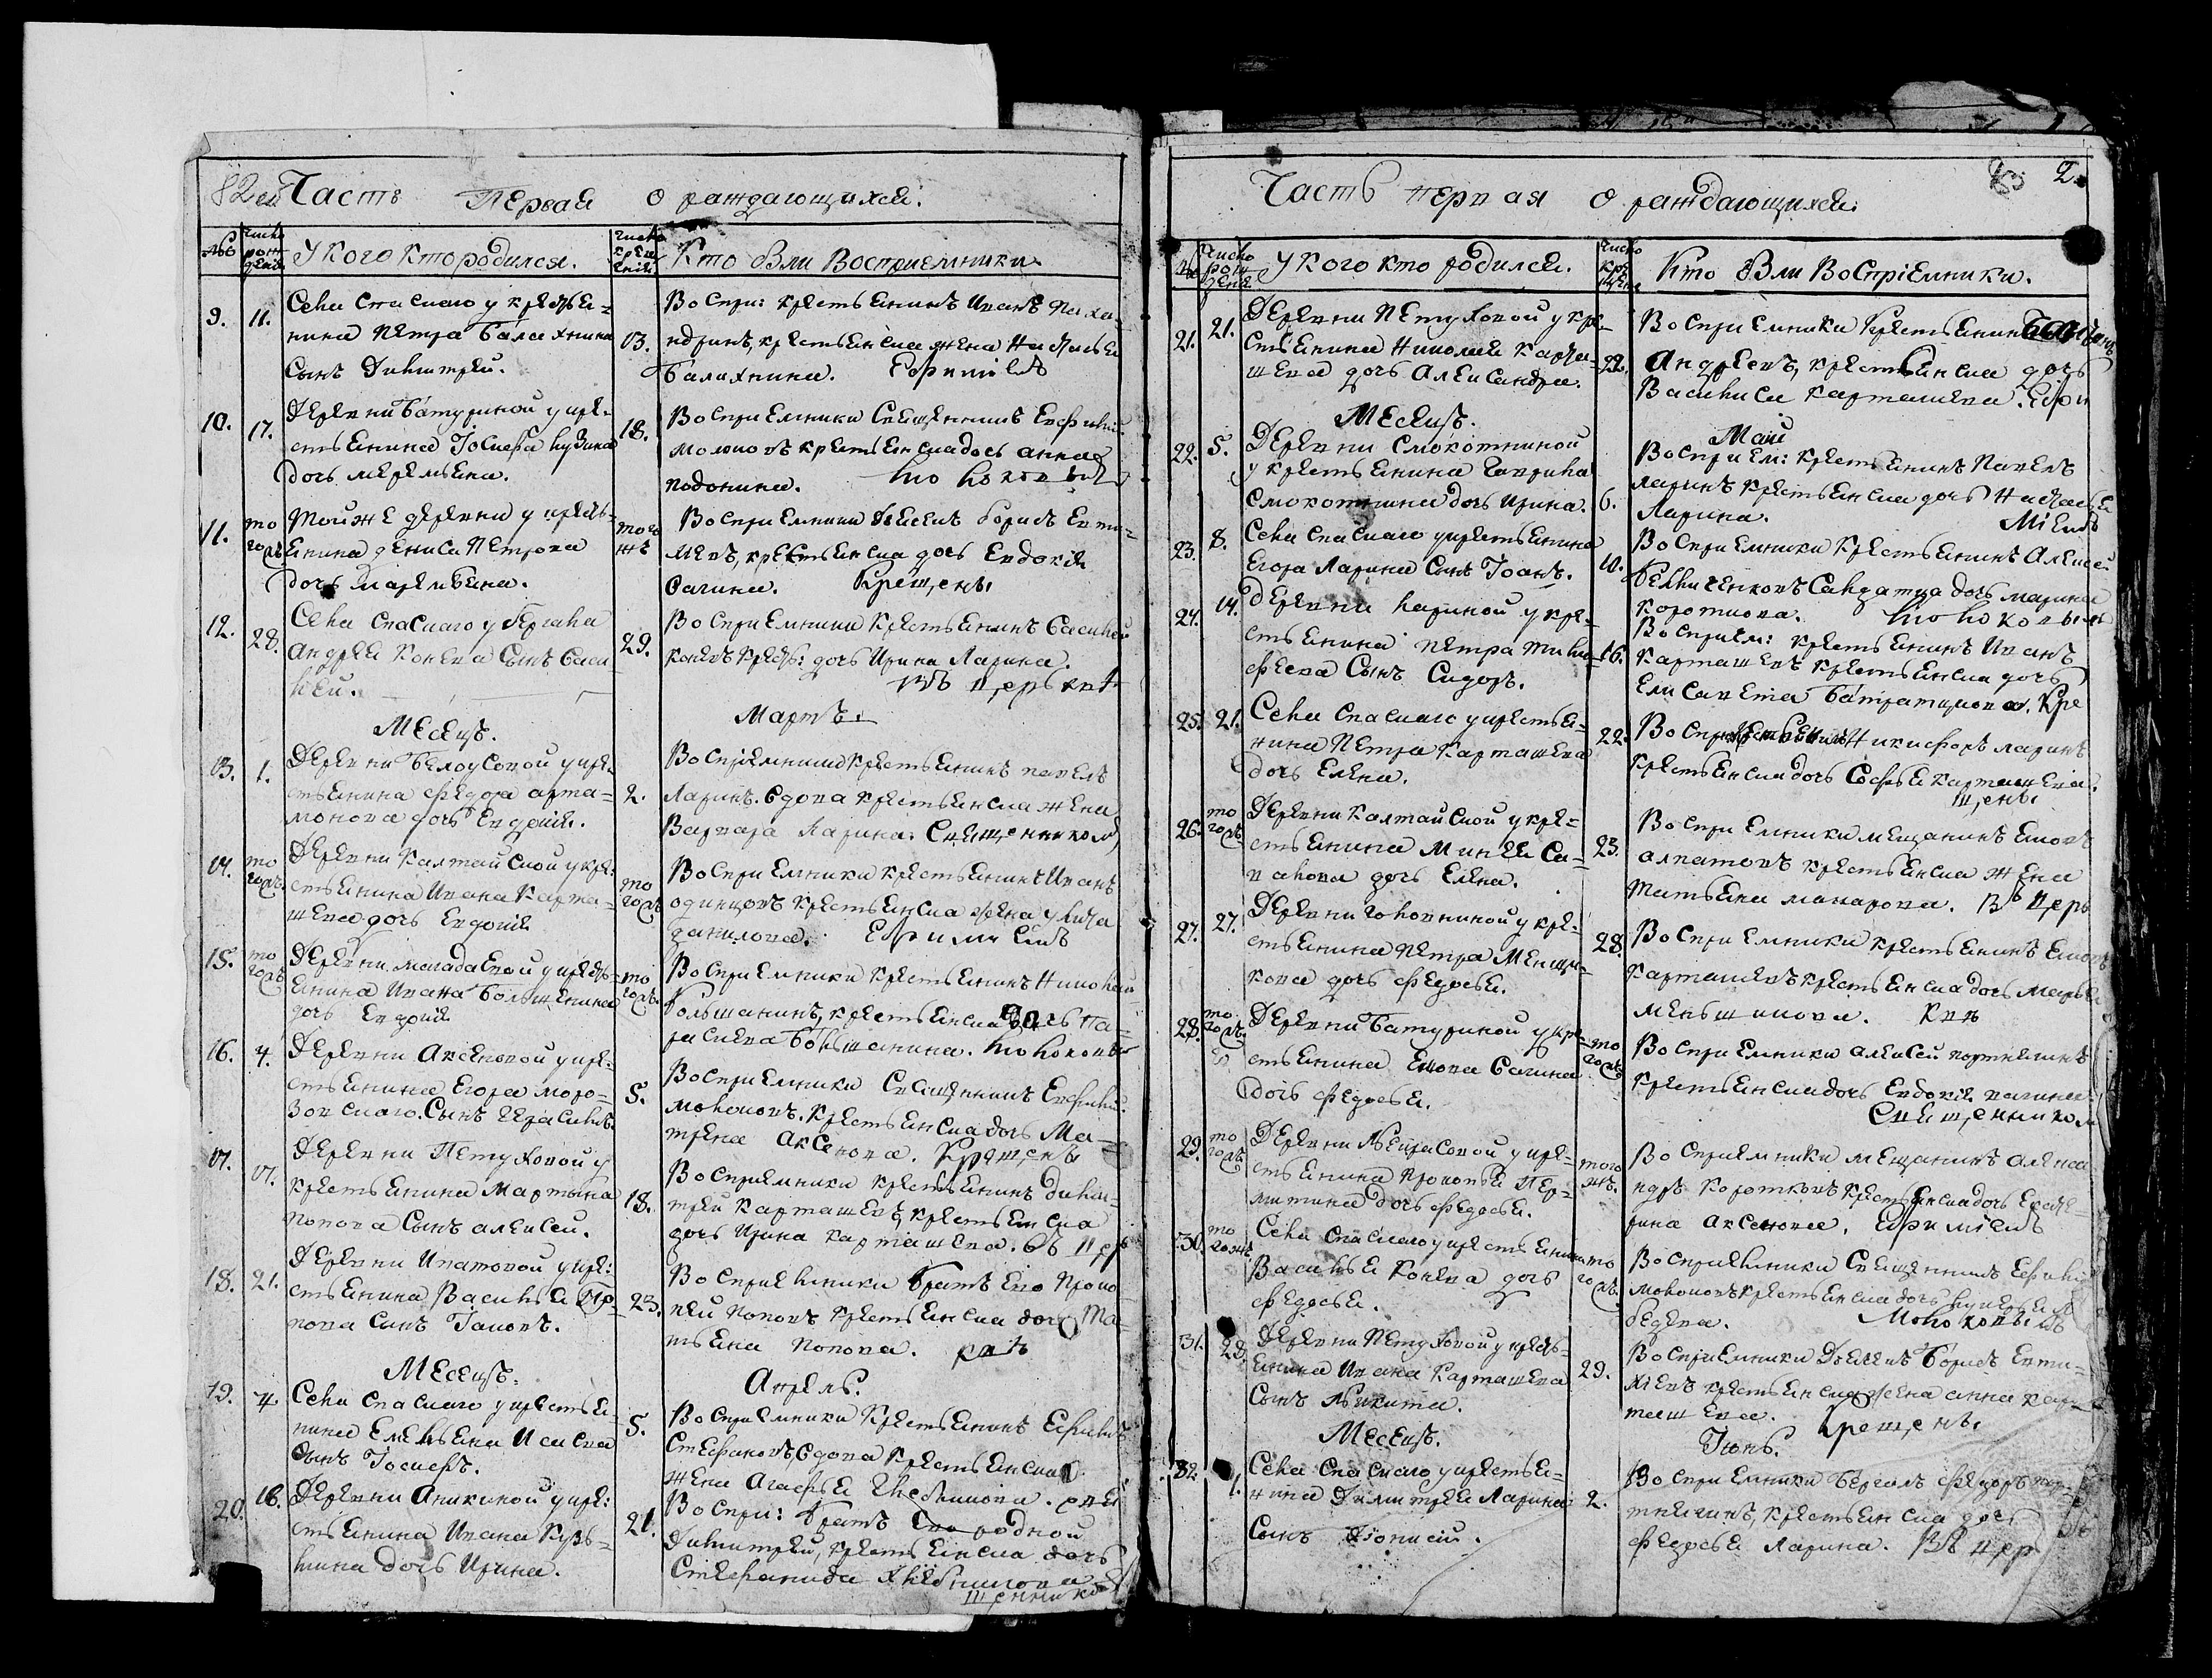 82 Часть Первая о раждающихся.
№ число рождения У кого кто родился. число крещения Кто были Восприемники.
9. 11. Села Спаскаго у крестья=
нина Петра Балахнина
Сынъ Димитрей.
13. Воспри: крестьянинъ Иванъ
ндринъ, крестьянска жена Наталья
Балахнина. Ефимiемъ
10. 17. Деревни Батуриной у кре-
стьянина Иосифа
дочь Меремьяна.
18. Восприемники Священникъ Евфимий
молоковъ крестьянска дочь анна
подонина. Молоковымъ
11. того жъ Той же деревни у кресть-
янина дениса Петрова
дочь Маремьяна.
того жъ Восприемники Дьячекъ борисъ Евти-
хиевъ, крестьянска дочь Евдокiя
Вагина. Крещены
12. 28. Села Спаскаго у бергала
андрея Конева Сынъ Васи
лей.
29. Восприемники Крестьянинъ Василей
коневъ Кресть: дочь Ирина Ларина.
Въ церькве
Месецъ. Мартъ.
13. 1. Деревни Белоусовой у кре-
стьянина Федора арта=
монова дочь Евдокiя.
2. Восприемники Крестьянинъ павелъ
Ларинъ. вдова крестьянска жена
Варвара Ларина. Священникомъ
14. того жъ Деревни Калтайской у кре-
стьянина Ивана Карта-
шева дочь Евдокiя
того жъ Восприемники крестьянинъ Иванъ
одинцовъ крестьянска жена улита
данилова. Ефимiемъ
15. того жъ Деревни у кресть-
янина Ивана Большанина
дочь Евдокiя
того жъ Восприемники крестьянинъ Николай
большанинъ, крестьянска дочь Па-
расковa Большанина. Молоковы
16. 4. Деревни Аксеновой у кре-
стьянина Егора моро=
зовскаго. Сынъ Герасимъ.
5. Восприемники Священникъ Евфимий
молоковъ. крестьянска дочь Ма-
трена Аксенова. Крещены
17. 17. Деревни Петуховой у
крестьянина Мартына
попова Сынъ алексей.
18. Восприемники крестьянинъ дими-
трей Карташевъ, крестьянска
дочь Ирина карташева. Въ цер
18. 21. Деревни Ипатовой у кре-
стьянина Василья По-
пова Сынъ Iаковъ.
23. Восприемники братъ Ево Проко
пей поповъ крестьянска дочь Та-
тьяна попова. кве
Месецъ. Апрель.
19. 4. Села Спаскаго у крестья
нина Емельяна Исакова
Сынъ Iосифъ.
5. Восприемники Крестьянинъ Ефимъ
Стефановъ, вдова Крестьянска
жена Агафья
20. 16. Деревни Аникиной у кре-
стьянина Ивана Кузь-
мина дочь Ирина.
21. Воспри: братъ Ево родной
Димитрей, крестьянска дочь
Стефанида Хлебникова
щеннико
83 2.
Часть первая о раждающихся.
№ число рождения У кого кто родился. число крещения Кто были Восприемники.
21. 21. Деревни Петуховой у кре-
стьянина Николая Карта-
шева дочь Александра.
22. Восприемники Крестьянинъ
Андреевъ, крестьянска дочь
Василиса Карташева. Ефи
Месецъ. Май
22. 5. Деревни Смокотниной
у крестьянина Гаврила
Смокотнина дочь Ирина.
6. Восприем: крестьянинъ Павелъ
Ларинъ крестьянска дочь Наталья
Ларина. Мiемъ
23. 8. Села Спаскаго у крестьянина
Егора Ларина Сынъ Iоанъ.
10. Восприемники Крестьянинъ Алексей
Сандатца дочь марина
Короткова. Молоковымъ
24. 14. Деревни Лариной у кре-
стьянина Петра Тимо-
феева Сынъ Сидоръ.
16. Восприем: крестьянинъ Иванъ
Карташевъ крестьянска дочь
Елисавета Кре
25. 21. Села Спаскаго у крестья-
нина Петра Карташева
дочь Елена.
22. Воспри Крестьянинъ Никифоръ ларинъ
Крестьянска дочь Софья карташева.
щены
26. того жъ Деревни Калтайской у кре=
стьянина Минея Са-
дочь Елена.
23. Восприемники мещанинъ Яковъ
алпатовъ крестьянска жена
Татьяна макарова. Въ церь
27. 27. Деревни Головниной у кре-
стьянина Петра Менщи-
кова дочь Федосья.
28. Восприемники крестьянинъ Яковъ
Карташевъ крестьянска дочь Марья
меньшикова. кве
28. того жъ Деревни Батуриной у кре-
стьянина Якова Вагина
дочь Федосья.
того жъ Восприемники алексей портнягинъ
крестьянска дочь Евдокiя вагина
Священником
29. того жъ Деревни Некрасовой у кре-
стьянина Прокопья Пер-
митина дочь Федосья.
того жъ. Восприемники мещанинъ Алекса
ндръ Коротковъ Крестьянска дочь Екате-
рина Аксенова. Ефимiемъ
30. того жъ Села Спаскаго у крестьянина
Василья Конева дочь
Федосья.
того жъ. Восприемники Священникъ Ефимий
молоковъ крестьянска дочь
бедева. Молоковымъ
31. 28. Деревни Петуховой у кресть-
янина Ивана Карташева
Сынъ Никита.
29. Восприемники Дьячекъ Борисъ Евти-
хiевъ крестьянска жена анна кар-
ташева. Крещены
Месецъ. Iюнь.
32. 1. Села Спаскаго у крестья-
нина Димитрея Ларина
Сынъ Дiонисiй.
2. Восприемники бергалъ Федоръ пор-
тнягинъ, крестьянска дочь
Федосья Ларина. Въ цер